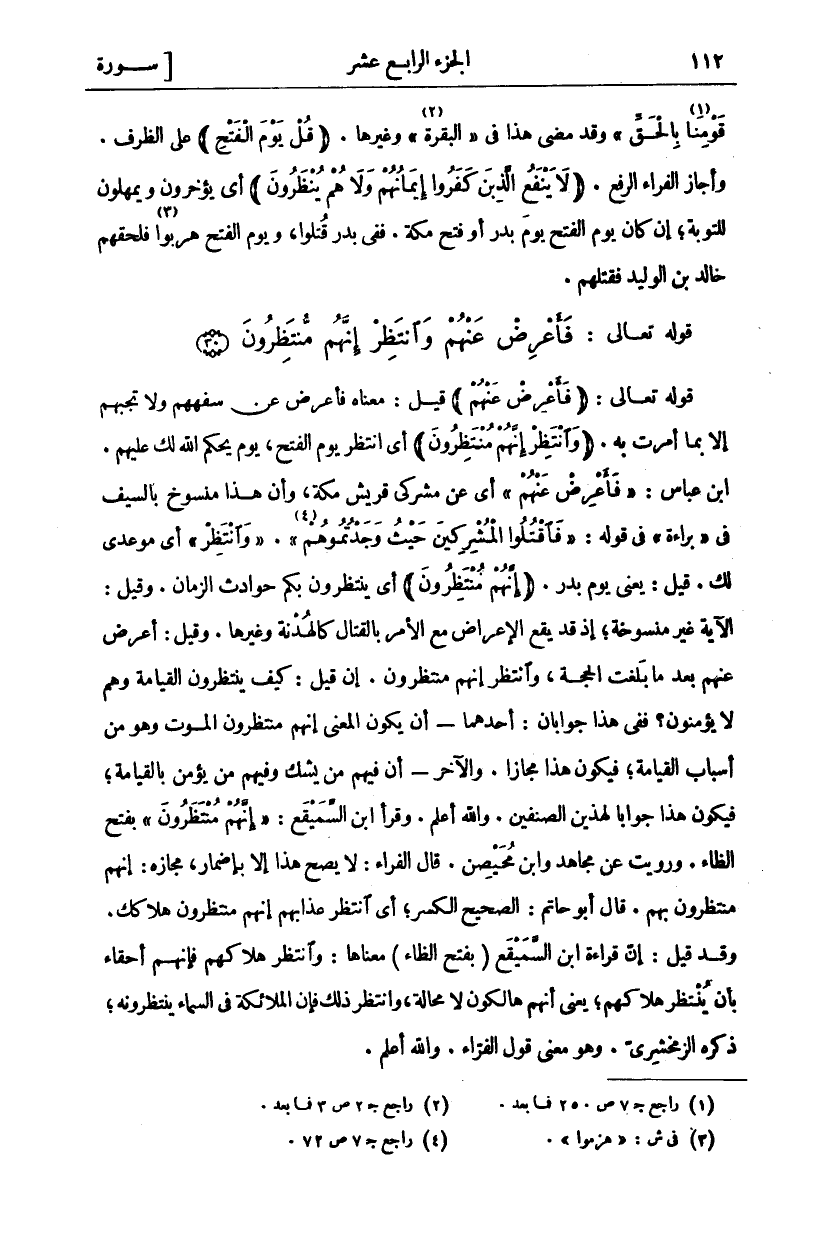 ١١٢ الجزء الرابع عشر [ ســورة
قَوْمِنَا بِالْحَقِّ (١) » وقد مضى هذا فى « البقرة (٢) » وغيرها . ﴿ قُلْ يَوْمَ الْفَتْحِ ﴾ على الظرف .
وأجاز الفراء الرفع . ﴿ لَا يَنْفَعُ الَّذِينَ كَفَرُوا إِيمَانُهُمْ وَلَا هُمْ يُنْظَرُونَ ﴾ أى يؤخرون ويمهلون
للتوبة؛ إن كان يوم الفتح يومَ بدر أو فتح مكة . ففى بدر قُتلوا، ويوم الفتح هربوا (٣) فلحقهم
خالد بن الوليد فقتلهم .
قوله تعـالى : فَأَعْرِضْ عَنْهُمْ وَٱنتَظِرْ إِنَّهُم مُّنتَظِرُونَ ﴿٣٠﴾
قوله تعـالى : ﴿ فَأَعْرِضْ عَنْهُمْ ﴾ قيـل : معناه فأعرض عن سفههم ولا تجبهم
إلا بما أمرت به . ﴿ وَٱنْتَظِرْ إِنَّهُمْ مُنْتَظِرُونَ ﴾ أى انتظر يوم الفتح، يوم يحكم الله لك عليهم .
ابن عباس : « فَأَعْرِضْ عَنْهُمْ » أى عن مشركى قريش مكة، وأن هـذا منسوخ بالسيف
فى « براءة » فى قوله : « فَٱقْتُلُوا الْمُشْرِكِينَ حَيْثُ وَجَدْتُمُوهُمْ (٤) » . « وَٱنْتَظِرْ » أى موعدى
لك . قيل : يعنى يوم بدر . ﴿ إِنَّهُمْ مُنْتَظِرُونَ ﴾ أى ينتظرون بكم حوادث الزمان . وقيل :
الآية غير منسوخة؛ إذ قد يقع الإعراض مع الأمر بالقتال كالهُدْنة وغيرها . وقيل : أعرض
عنهم بعد ما بَلّغت الحجـة ، وٱنتظر إنهم منتظرون . إن قيل : كيف ينتظرون القيامة وهم
لا يؤمنون؟ ففى هذا جوابان : أحدهما — أن يكون المعنى إنهم منتظرون المـوت وهو من
أسباب القيامة؛ فيكون هذا مجازا . والآخر — أن فيهم من يشك وفيهم من يؤمن بالقيامة؛
فيكون هذا جوابا لهذين الصنفين . والله أعلم . وقرأ ابن السَّمَيْقَع : « إِنَّهُمْ مُنْتَظَرُونَ » بفتح
الظاء . ورويت عن مجاهد وابن مُحَيْصِن . قال الفراء : لا يصح هذا إلا بإضمار، مجازه : إنهم
منتظرون بهم . قال أبو حاتم : الصحيح الكسر؛ أى ٱنتظر عذابهم إنهم منتظرون هلاكك.
وقـد قيل : إنّ قراءة ابن السَّمَيْقَع ( بفتح الظاء ) معناها : وٱنتظر هلاكهم فإنهـم أحقاء
بأن يُنْتظر هلاكهم؛ يعنى أنهم هالكون لا محالة، وانتظر ذلك فإن الملائكة فى السماء ينتظرونه؛
ذكره الزمخشرىّ . وهو معنى قول الفرّاء . والله أعلم .
(١) راجع جـ ٧ ص ٢٥٠ فـا بعد . (٢) راجع جـ ٢ ص ٣ فـا بعد .
(٣) فى ش : « هزموا » . (٤) راجع جـ ٧ ص ٧٢ .